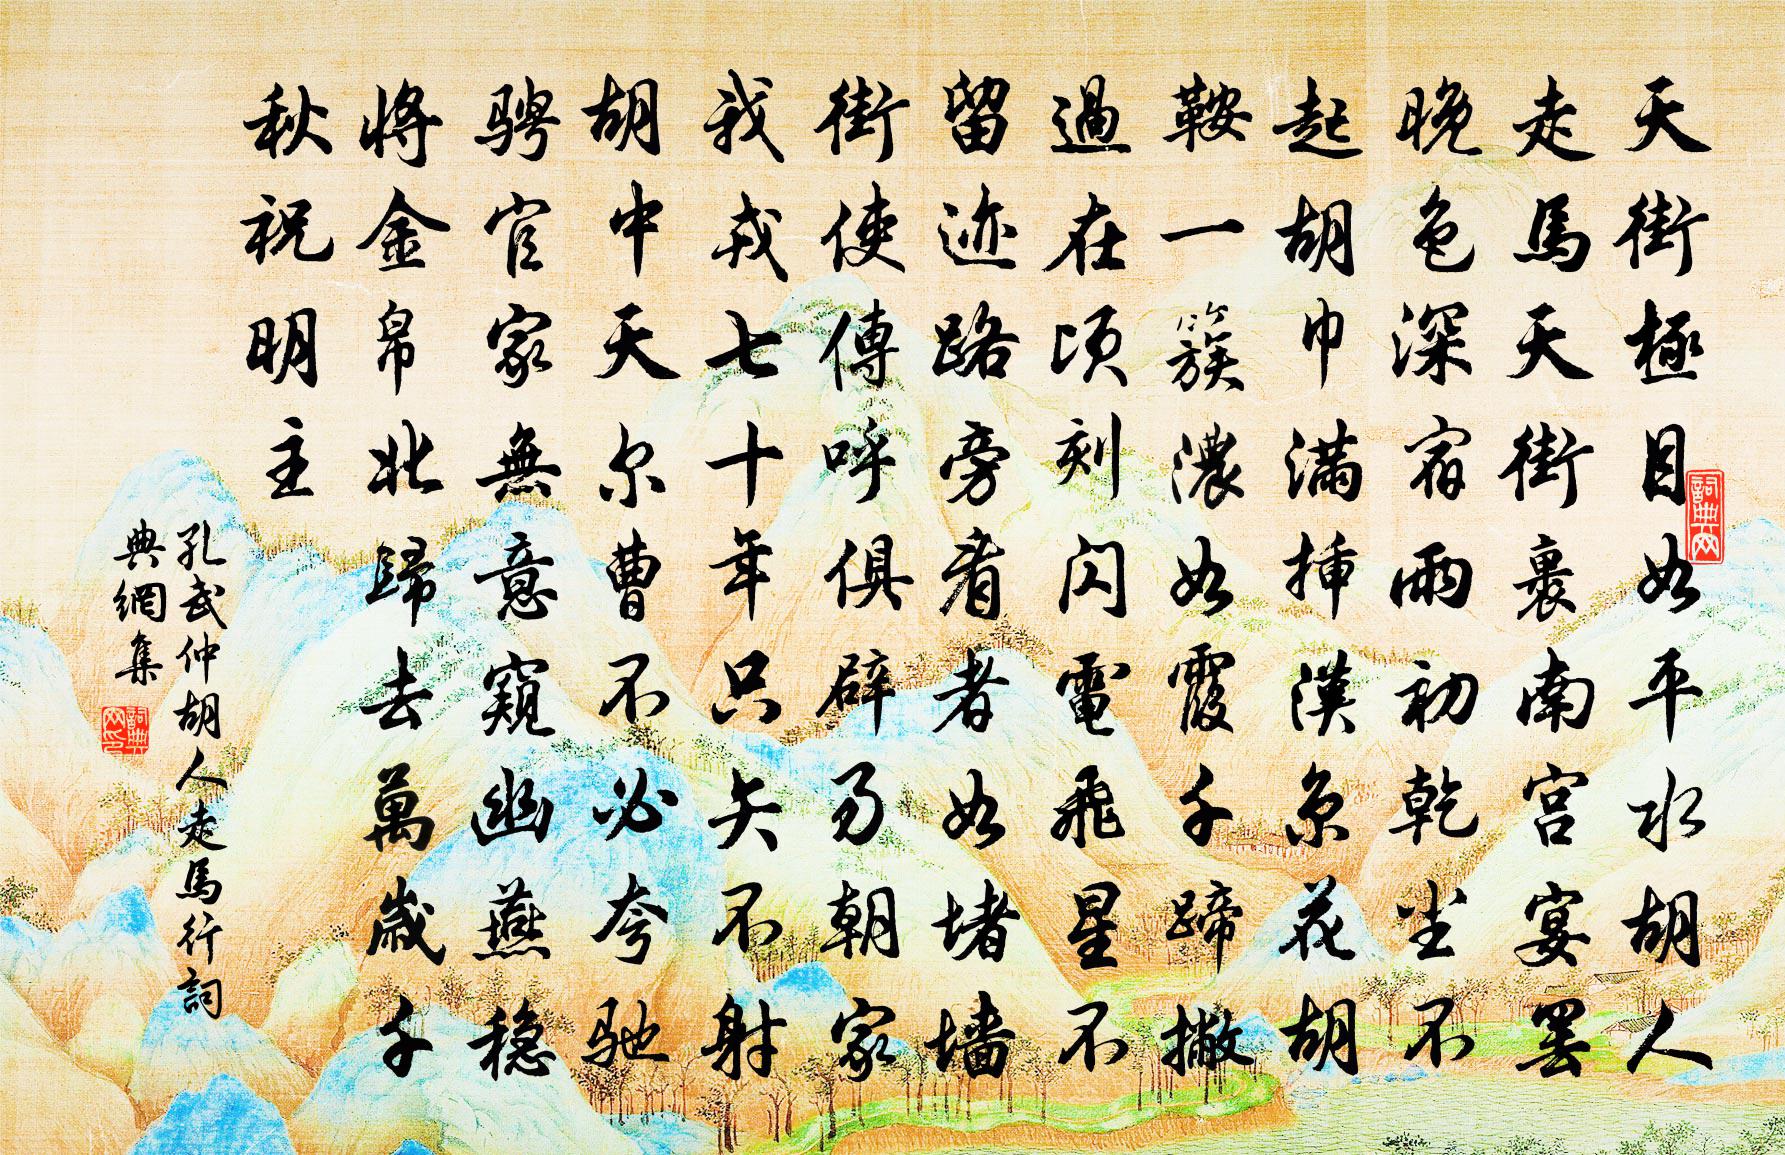 天街極目如平水胡人
走馬天街裏南宮宴罢
晚色深宿雨初乾尘不
起胡巾滿挿漢京花胡
鞍一簇濃如霞千蹄撇
過在頃刻閃電飛星不
留迹路旁看者如堵墙
街使傳呼俱辟易朝家
我戎七十年只矢不射
胡中天尔曹不必夸驰
骋官家無意窺幽燕穏
将金帛北歸去萬歲千
秋祝明主
孔武仲胡人走馬行詞
典網集
詞典网
詞典网印